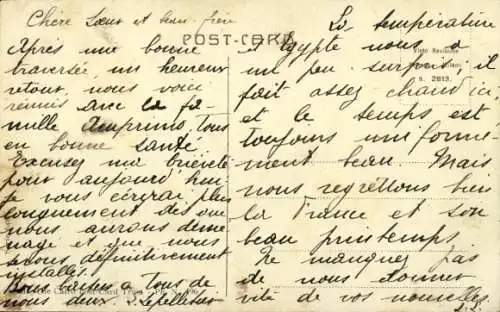 Chère Sœur et beau-frère
POST-CARD
Après une bonne
traversée, un heureux
retour, nous voici
réunis avec la fa-
mille tous
en bonne santé.
Excusez ma brièveté
pour aujourd'hui
je vous écrirai plus
longuement dès que
nous aurons démé-
nagé et que nous
serons définitivement
installés.
Bons baisers à tous de
nous deux. J. Lepelletier
The Cairo Post-Card Trust
La température
d'Egypte nous a
un peu surpris; il
fait assez chaud ici
et le temps est
toujours uniformé-
ment beau. Mais
nous regrettons bien
la France et son
beau printemps.
Ne manquez pas
de nous donner
vite de vos nouvelles.
S. 2813.